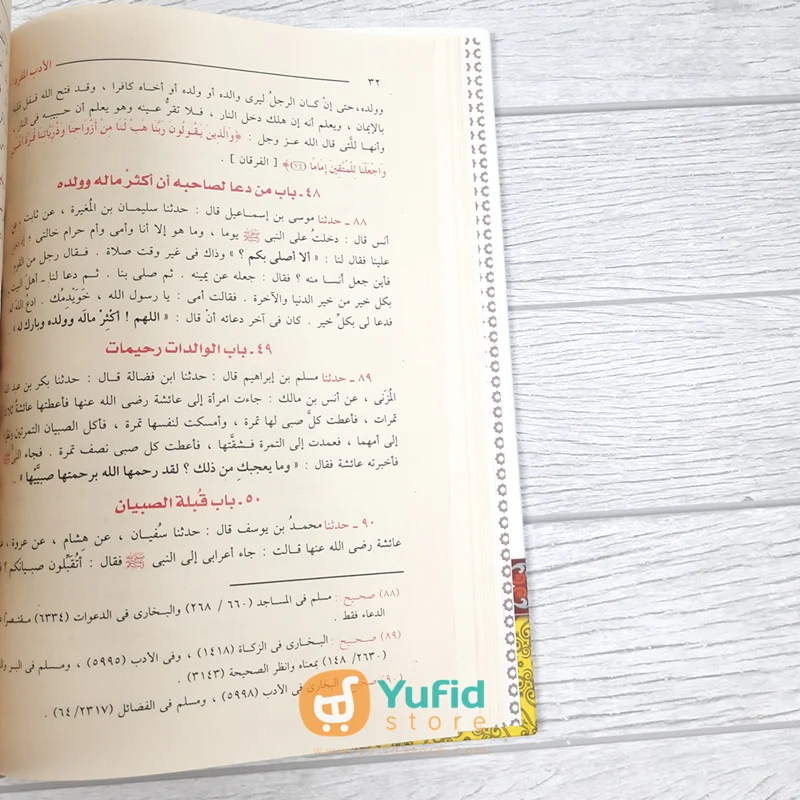 ٣٢ الأدب المفرد
وولده،حتى إنْ كان الرجلُ ليرى والده أو ولده أو أخاه كافرا ، وقـد فتح الله قـفل قلبه
بالإيمان ، ويعلم أنه إن هلك دخل النار ، فـلا تقرُّ عـينه وهو يعلم أن حـبيبـه فى النار
وأنها للَّتى قال الله عـز وجل : ﴿وَالَّذِينَ يَقُولُونَ رَبَّنَا هَبْ لَنَا مِنْ أَزْوَاجِنَا وَذُرِّيَّاتِنَا قُرَّةَ أَعْيُنٍ
وَاجْعَلْنَا لِلْمُتَّقِينَ إِمَامًا (٧٤)﴾ [ الفرقان ] .
٤٨ـ باب من دعا لصاحبه أن أكثرْ ماله وولده
٨٨ ـ حدثنا موسى بن إسماعيل قال : حدثنا سليمان بن المُغيرة ، عن ثابت ، عن
أنس قال : دخلتُ على النبى ﷺ يوما ، وما هو إلا أنا وأمى وأم حرام خالتى ؛
علينا فقال لنا : « ألا أصلى بكم ؟ » وذاك فى غير وقت صلاة . فـقال رجل من القوم
فأين جعل أنسا منه ؟ فقال : جعله عن يمينه . ثم صلى بنا . ثـم دعا لنا ـ أهل البيت ـ
بكل خير من خير الدنيا والآخرة . فقالت أمى : يا رسول الله ، خُوَيْدِمُك . ادعُ الله له
فدعا لى بكلِّ خير . كان فى آخر دعائه أنْ قال : « اللهم ! أكثرْ مالَه وولده وبارك له »
٤٩ـ باب الوالدات رحيمات
٨٩ ـ حدثنا مسلم بن إبراهيم قال : حدثنا ابن فضالة قـال : حدثنا بكر بن عبد الله
المُزَنى ، عن أنس بن مالك : جاءت امرأة إلى عائشة رضى الله عنها فأعطتها عائشةُ ثلاث
تمرات ، فأعطت كلَّ صبى لها تمرة ، وأمسكت لنفسها تمرة ، فأكل الصبيان التمرتين ونظرا
إلى أمهما ، فعمدت إلى التمرة فـشقَّتها ، فأعطت كل صبى نصف تمرة . فجاء النبى ﷺ
فأخبرته عائشة فقال : « وما يعجبك من ذلك ؟ لقد رحمها الله برحمتها صبيَّيْها » .
٥٠ـ باب قُبلة الصبيان
٩٠ ـ حدثنا محمدُ بن يوسف قال : حدثنا سُفيـان ، عن هِشام ، عن عروة ، عن
عائشة رضى الله عنها قـالت : جاء أعرابى إلى النبى ﷺ فقال : أتُقَبِّلون صبيانكم؟
(٨٨) صحيح : مسلم فى المساجد (٦٦٠ / ٢٦٨) والبخارى فى الدعوات (٦٣٣٤) مقتصرًا
الدعاء فقط .
(٨٩) صحيح : البخارى فى الزكاة (١٤١٨) ، وفى الأدب (٥٩٩٥) ، ومسلم فى البر
(٢٦٣٠/ ١٤٨) بمعناه وانظر الصحيحة (٣١٤٣) .
(٩٠) البخارى فى الأدب (٥٩٩٨) ، ومسلم فى الفضائل (٢٣١٧/ ٦٤) .
Yufid
store